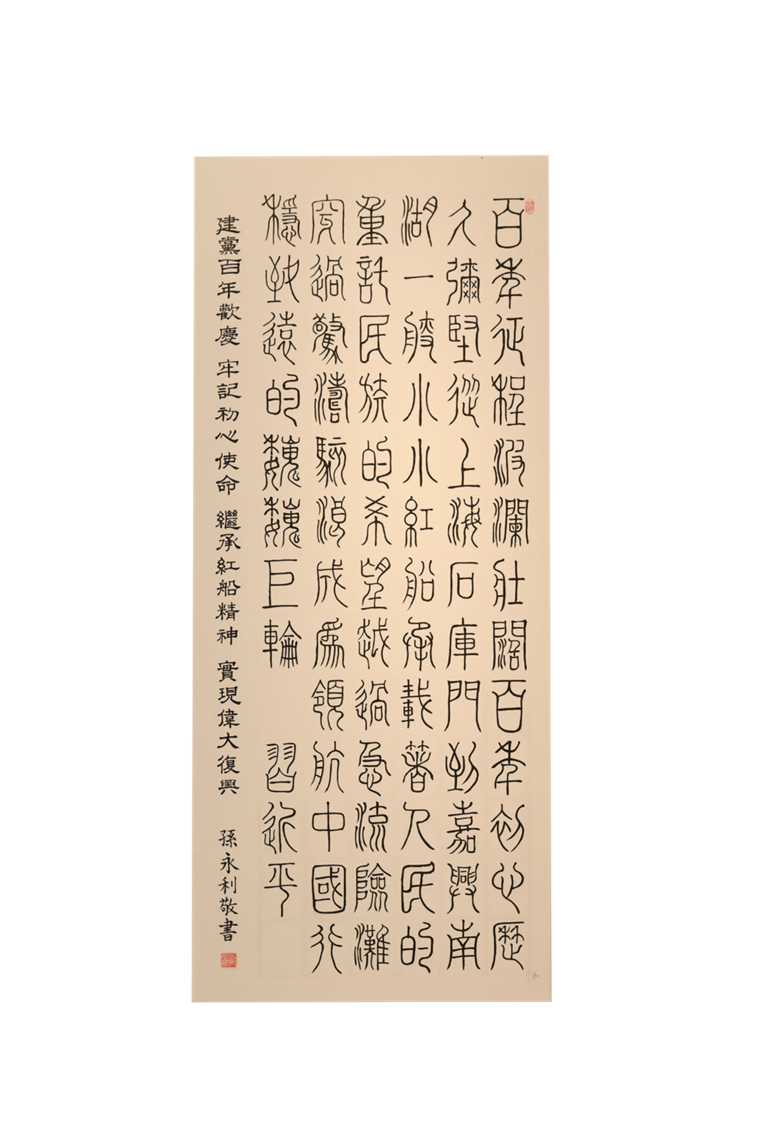 百年征程波瀾壯闊百年初心歷
久彌堅從上海石庫門到嘉興南
湖一艘小小紅船承載著人民的
重託民族的希望越過急流險灘
穿過驚濤駭浪成爲領航中國行
穩致遠的巍巍巨輪 習近平
建黨百年歡慶 牢記初心使命 繼承紅船精神 實現偉大復興 孫永利敬書